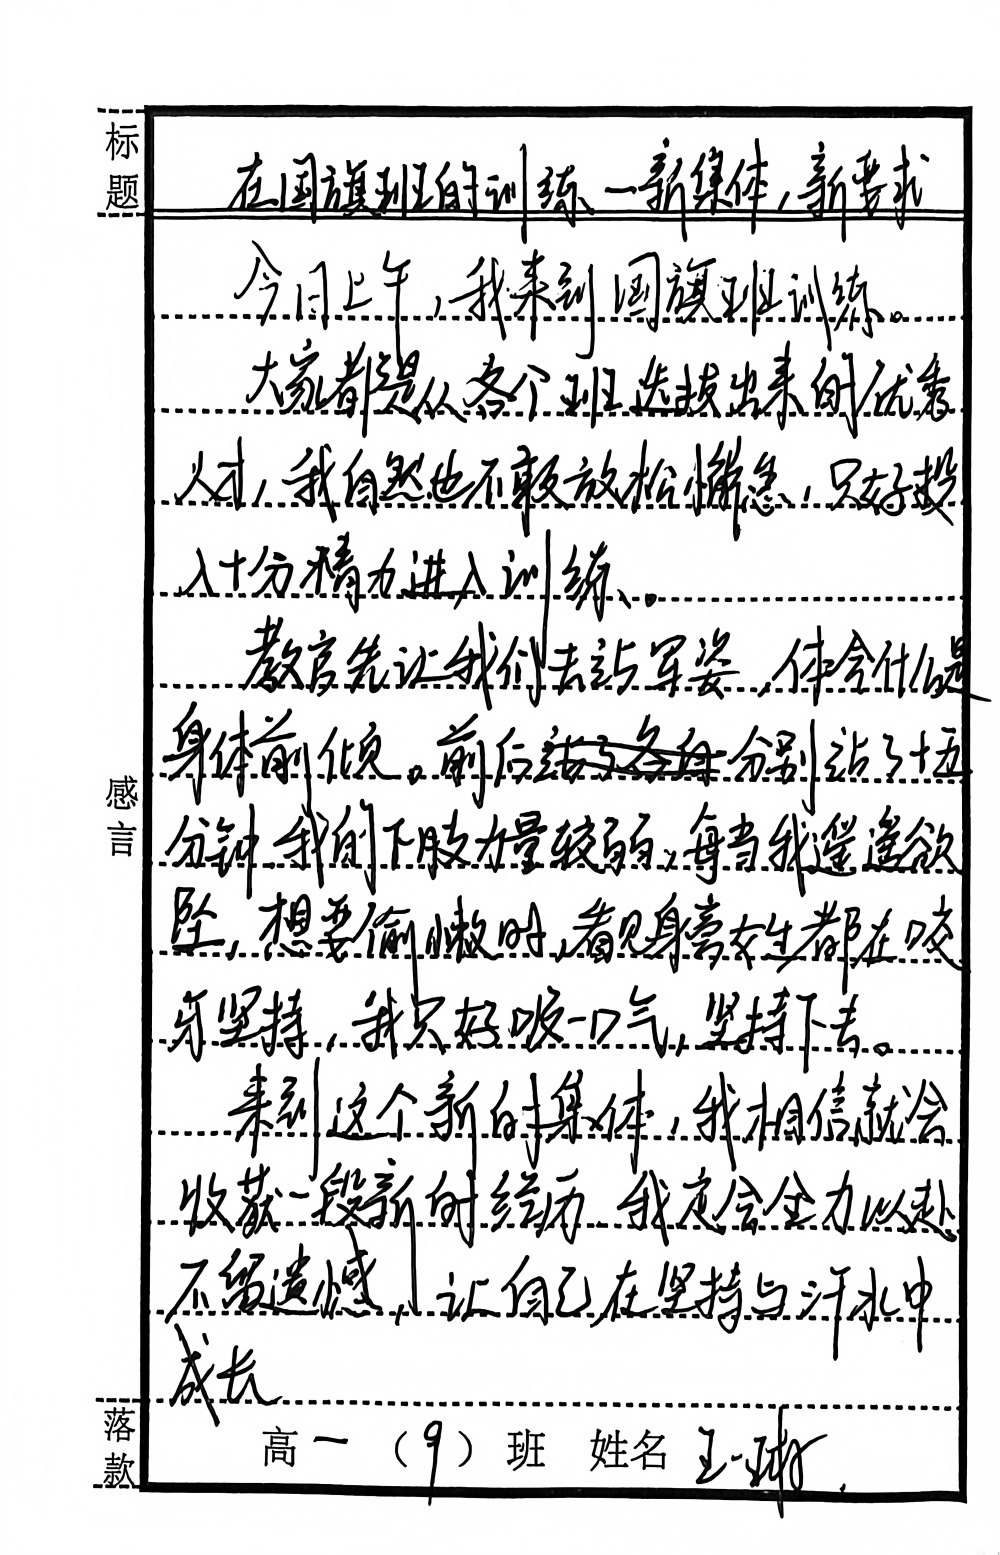 标题
在国旗班的训练—新集体，新要求
今日上午，我来到国旗班训练。
大家都是从各个班选拔出来的优秀
人才，我自然也不敢放松懈怠，只好投
入十分精力进入训练。
教官先让我们去站军姿，体会什么是
身体前倾。前后分别站了十五
分钟，我的下肢力量较弱，每当我遥遥欲
坠，想要偷懒时，看见身旁女生都在咬
牙坚持，我只好吸一口气，坚持下去。
感言
来到这个新的集体，我相信就会
收获一段新的经历，我定会全力以赴
不留遗憾，让自己在坚持与汗水中
成长
落款
高一（9）班 姓名 王一